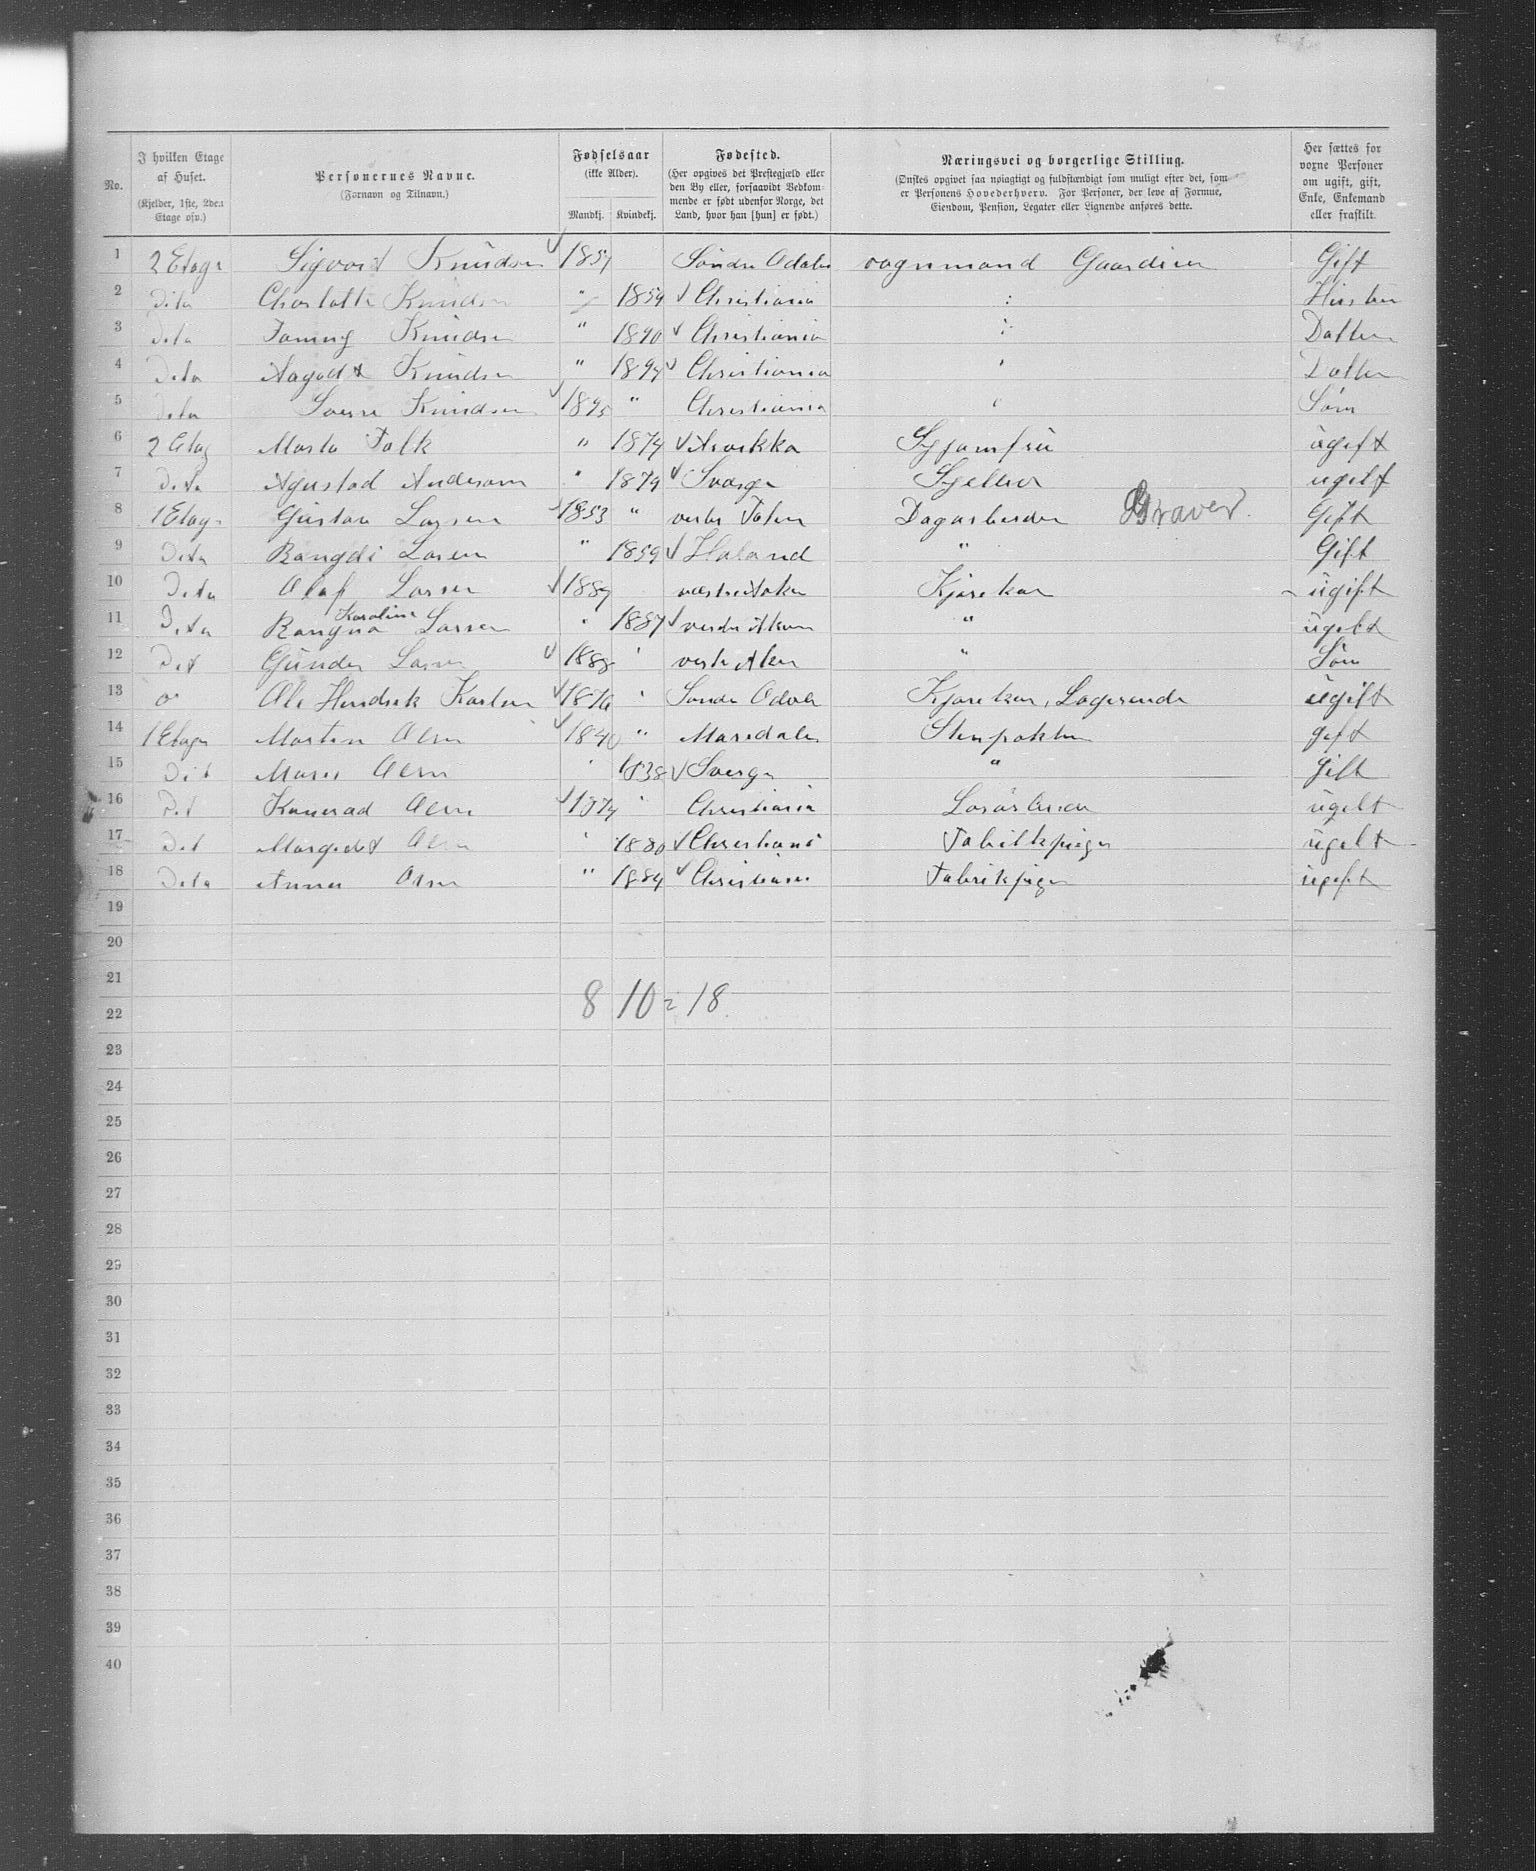 No.
I hvilken Etage af Huset. (Kjelder, 1ste, 2den Etage osv.)
Personernes Navne. (Fornavn og Tilnavn.)
Fødselsaar (ikke Alder). Mandkj. Kvindekj.
Fødested. (Her opgives det Prestegjæld eller den By eller, forsaavidt Vedkommende er født udenfor Norge, det Land, hvor han [hun] er født.)
Næringsvei og borgerlige Stilling. (Ønskes opgivet saa nøiagtigt og fuldstændigt som muligt efter det, som er Personens Hovederhverv. For Personer, der leve af Formue, Eiendom, Pension, Legater eller Lignende anføres dette.)
Her sættes for voxne Personer om ugift, gift, Enke, Enkemand eller fraskilt.
1 2 Etage Sigvart Knudsen 1857 Søndre Odalen vognmand Gaardeier Gift
2 Dito Charlotte Knudsen " 1859 Christiania
3 Dito Fanny Knudsen " 1890 Christiania " Datter
4 Dito Aagodt Knudsen " 1894 Christiania " Datter
5 Dito Sverre Knudsen 1895 " Christiania " Søn
6 2 Etag Marta Falk " 1874 Arvikka Syjomfru ugift
7 Dito Agustad Andersson " 1879 Sverge ugift
8 1 Etage Gustav Larsen 1853 " vestre Toten Dagarbeider Graver. Gift
9 Dito Rangdi Larsen " 1859 Haland " Gift
10 Dito Olaf Larsen 1889 vestre Aker Kjørekar ugift
11 Dito Rangna Karoline Larsen " 1887 vestre Aker " ugift
12 Dit Gunder Larsen 1888 " vestre Aker " Søn
13 Ole Hendrik Karlsen 1876 " Søndre Odalen Kjørekar, Logerende ugift
14 1 Etage Martin Olsen 1840 " Maridalen gift
15 Dit Maren Olsen " 1838 Sverge " Gift
16 Dit Konerad Olsen 1874 " Christiania Løsarbeider ugift
17 Dit Margedet Olsen " 1880 Christiania Fabrikkpige ugift
18 Dito Anna Olsen " 1884 Christiania Fabrikpige ugift
19
20
21
8 10 = 18
22
23
24
25
26
27
28
29
30
31
32
33
34
35
36
37
38
39
40